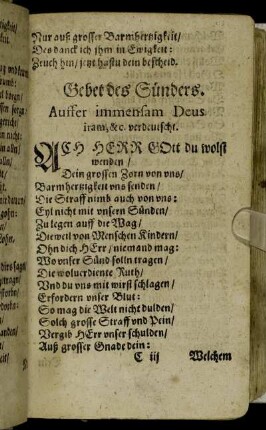 Nur auß grosser Barmhertzigkeit/
Des danck ich jhm in Ewigkeit:
Zeuch hin/ jetzt hastu dein bescheid.
Gebet des Sünders.
Auffer immensam Deus
iram, &c. verdeutscht.
ACH HERR GOtt du wolst
wenden/
Dein grossen Zorn von vns/
Barmhertzigkeit vns senden/
Die Straff nimb auch von vns:
Eyl nicht mit vnsern Sünden/
Zu legen auff die Wag/
Dieweil von Menschen Kindern/
Ohn dich HErr/ niemand mag:
Wo vnser Sünd solln tragen/
Die wolverdiente Ruth/
Vnd du vns mit wirst schlagen/
Erfordern vnser Blut:
So mag die Welt nicht dulden/
Solch grosse Straff vnd Pein/
Vergib HErr vnser schulden/
Auß grosser Gnade dein:
C iij Welchem